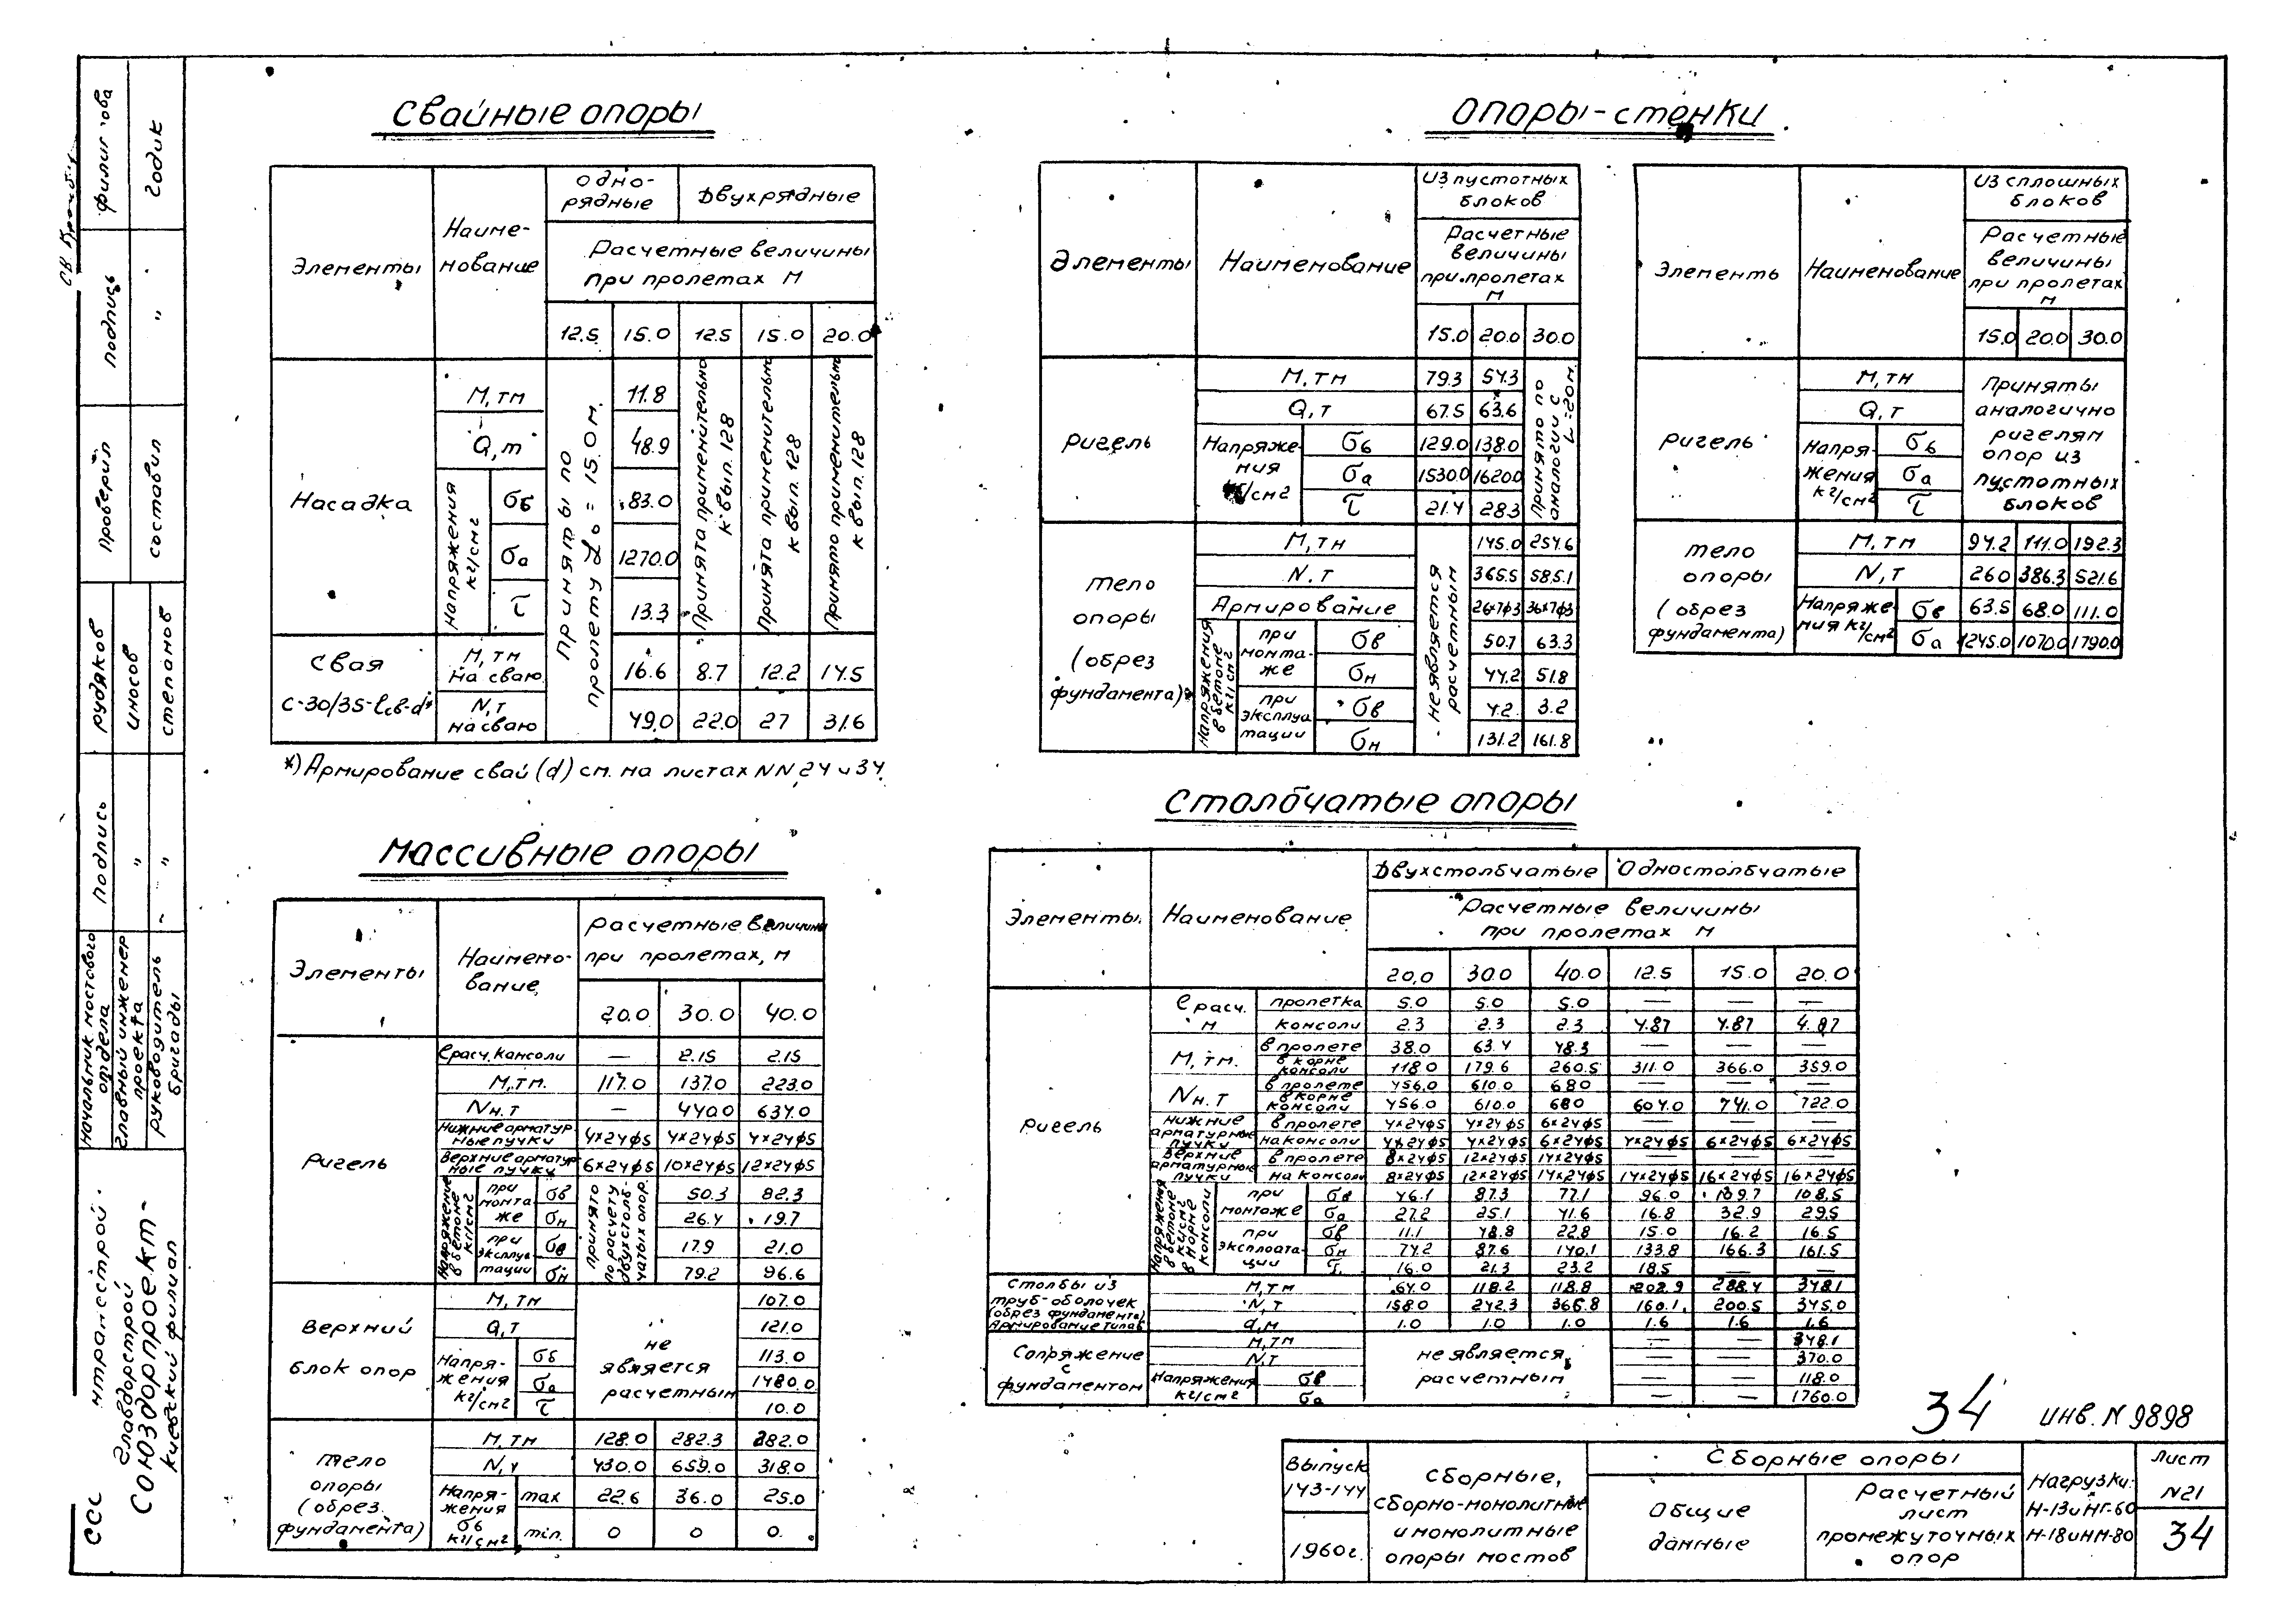 Свайные опоры
Элементы
Наименование
Однорядные
Двухрядные
Расчетные величины при пролетах м
12.5 15.0 12.5 15.0 20.0
Насадка
М, тм 11.8
Q, т 48.9
Напряжения кг/см2
σб 83.0
σа 1270.0
τ 13.3
Приняты по пролету Lо = 15.0 м.
Принята применительно к вып. 128
Принята применительно к вып. 128
Принято применительно к вып. 128
Свая С-30/35-ℓсв-d*
М, тм на сваю 16.6 8.7 12.2 14.5
N, т на сваю 49.0 22.0 27 31.6
*) Армирование свай (d) см. на листах NN 24 и 34
Опоры-стенки
Элементы
Наименование
Из пустотных блоков
Расчетные величины при пролетах м
15.0 20.0 30.0
Ригель
М, тм 79.3 54.3
Q, т 67.5 63.6
Напряжения кг/см2
σб 129.0 138.0
σа 1530.0 1620.0
τ 21.4 28.3
Принято по аналогии с L=20м.
Тело опоры (обрез фундамента)
М, тм 145.0 254.6
N, т 365.5 585.1
Армирование 26×7ф3 36×7ф3
Напряжения в бетоне кг/см2
при монтаже
σв 50.7 63.3
σн 44.2 51.8
при эксплуатации
σв 4.2 3.2
σн 131.2 161.8
не является расчетным
Элементы
Наименование
Из сплошных блоков
Расчетные величины при пролетах м
15.0 20.0 30.0
Ригель
М, тм
Q, т
Напряжения кг/см2
σб
σа
τ
Приняты аналогично ригелям опор из пустотных блоков
Тело опоры (обрез фундамента)
М, тм 94.2 111.0 192.3
N, т 260 386.3 521.6
Напряжения кг/см2
σв 63.5 68.0 111.0
σа 1245.0 1070.0 1790.0
Массивные опоры
Элементы
Наименование
Расчетные величины при пролетах, м
20.0 30.0 40.0
Ригель
ℓрасч. консоли — 2.15 2.15
М, тм. 117.0 137.0 223.0
Nн. т — 440.0 634.0
Нижние арматурные пучки 4×24ф5 4×24ф5 4×24ф5
Верхние арматурные пучки 6×24ф5 10×24ф5 12×24ф5
Напряжение в бетоне кг/см2
при монтаже
σв 50.3 82.3
σн 26.4 19.7
при эксплуатации
σв 17.9 21.0
σн 79.2 96.6
Принято по расчету двухстолбчатых опор.
Верхний блок опор
М, тм 107.0
Q, т 121.0
Напряжения кг/см2
σб 113.0
σа 1480.0
τ 10.0
не является расчетным
Тело опоры (обрез фундамента)
М, тм 128.0 282.3 282.0
N, т 430.0 659.0 318.0
Напряжения σб кг/см2
max 22.6 36.0 25.0
min. 0 0 0.
Столбчатые опоры
Элементы
Наименование
Двухстолбчатые
Одностолбчатые
Расчетные величины при пролетах м
20,0 30.0 40.0 12.5 15.0 20.0
Ригель
ℓ расч. м
пролетка 5.0 5.0 5.0 — — —
консоли 2.3 2.3 2.3 4.87 4.87 4.87
М, тм.
в пролете 38.0 63.4 48.3 — — —
в корне консоли 118.0 179.6 260.5 311.0 366.0 359.0
Nн. т
в пролете 456.0 610.0 680 — — —
в корне консоли 456.0 610.0 680 604.0 741.0 722.0
Нижние арматурные пучки
в пролете 4×24ф5 4×24ф5 6×24ф5 — — —
на консоли 4×24ф5 4×24ф5 6×24ф5 4×24ф5 6×24ф5 6×24ф5
Верхние арматурные пучки
в пролете 8×24ф5 12×24ф5 14×24ф5 — — —
на консоли 8×24ф5 12×24ф5 14×24ф5 14×24ф5 16×24ф5 16×24ф5
Напряжения в бетоне кг/см2 в корне консоли
при монтаже
σв 46.1 87.3 77.1 96.0 109.7 108.5
σа 27.2 25.1 41.6 16.8 32.9 29.5
при эксплоатации
σв 11.1 48.8 22.8 15.0 16.2 16.5
σн 74.2 87.6 140.1 133.8 166.3 161.5
τ 16.0 21.3 23.2 18.5 — —
Столбы из труб-оболочек (обрез фундамента) Армирование типа В
М, тм 64.0 118.2 118.8 202.9 288.4 348.1
N, т 158.0 242.3 366.8 160.1 200.5 345.0
d, м 1.0 1.0 1.0 1.6 1.6 1.6
Сопряжение с фундаментом
М, тм — — 348.1
N, т — — 370.0
Напряжения кг/см2
σв — — 118.0
σа — — 1760.0
не является расчетным
34 инв. N 9898
Выпуск 143-144
1960г.
Сборные, сборно-монолитные и монолитные опоры мостов
Сборные опоры
Общие данные
Расчетный лист промежуточных опор
Нагрузки: Н-13 и НГ-60 Н-18 и НК-80
Лист N21
34
Годик
подпись
проверил
составил
Рудяков
Иносов
Степанов
подпись
Начальник мостового отдела
Главный инженер проекта
Руководитель бригады
Главдорстрой
Союздорпроект
Киевский филиал